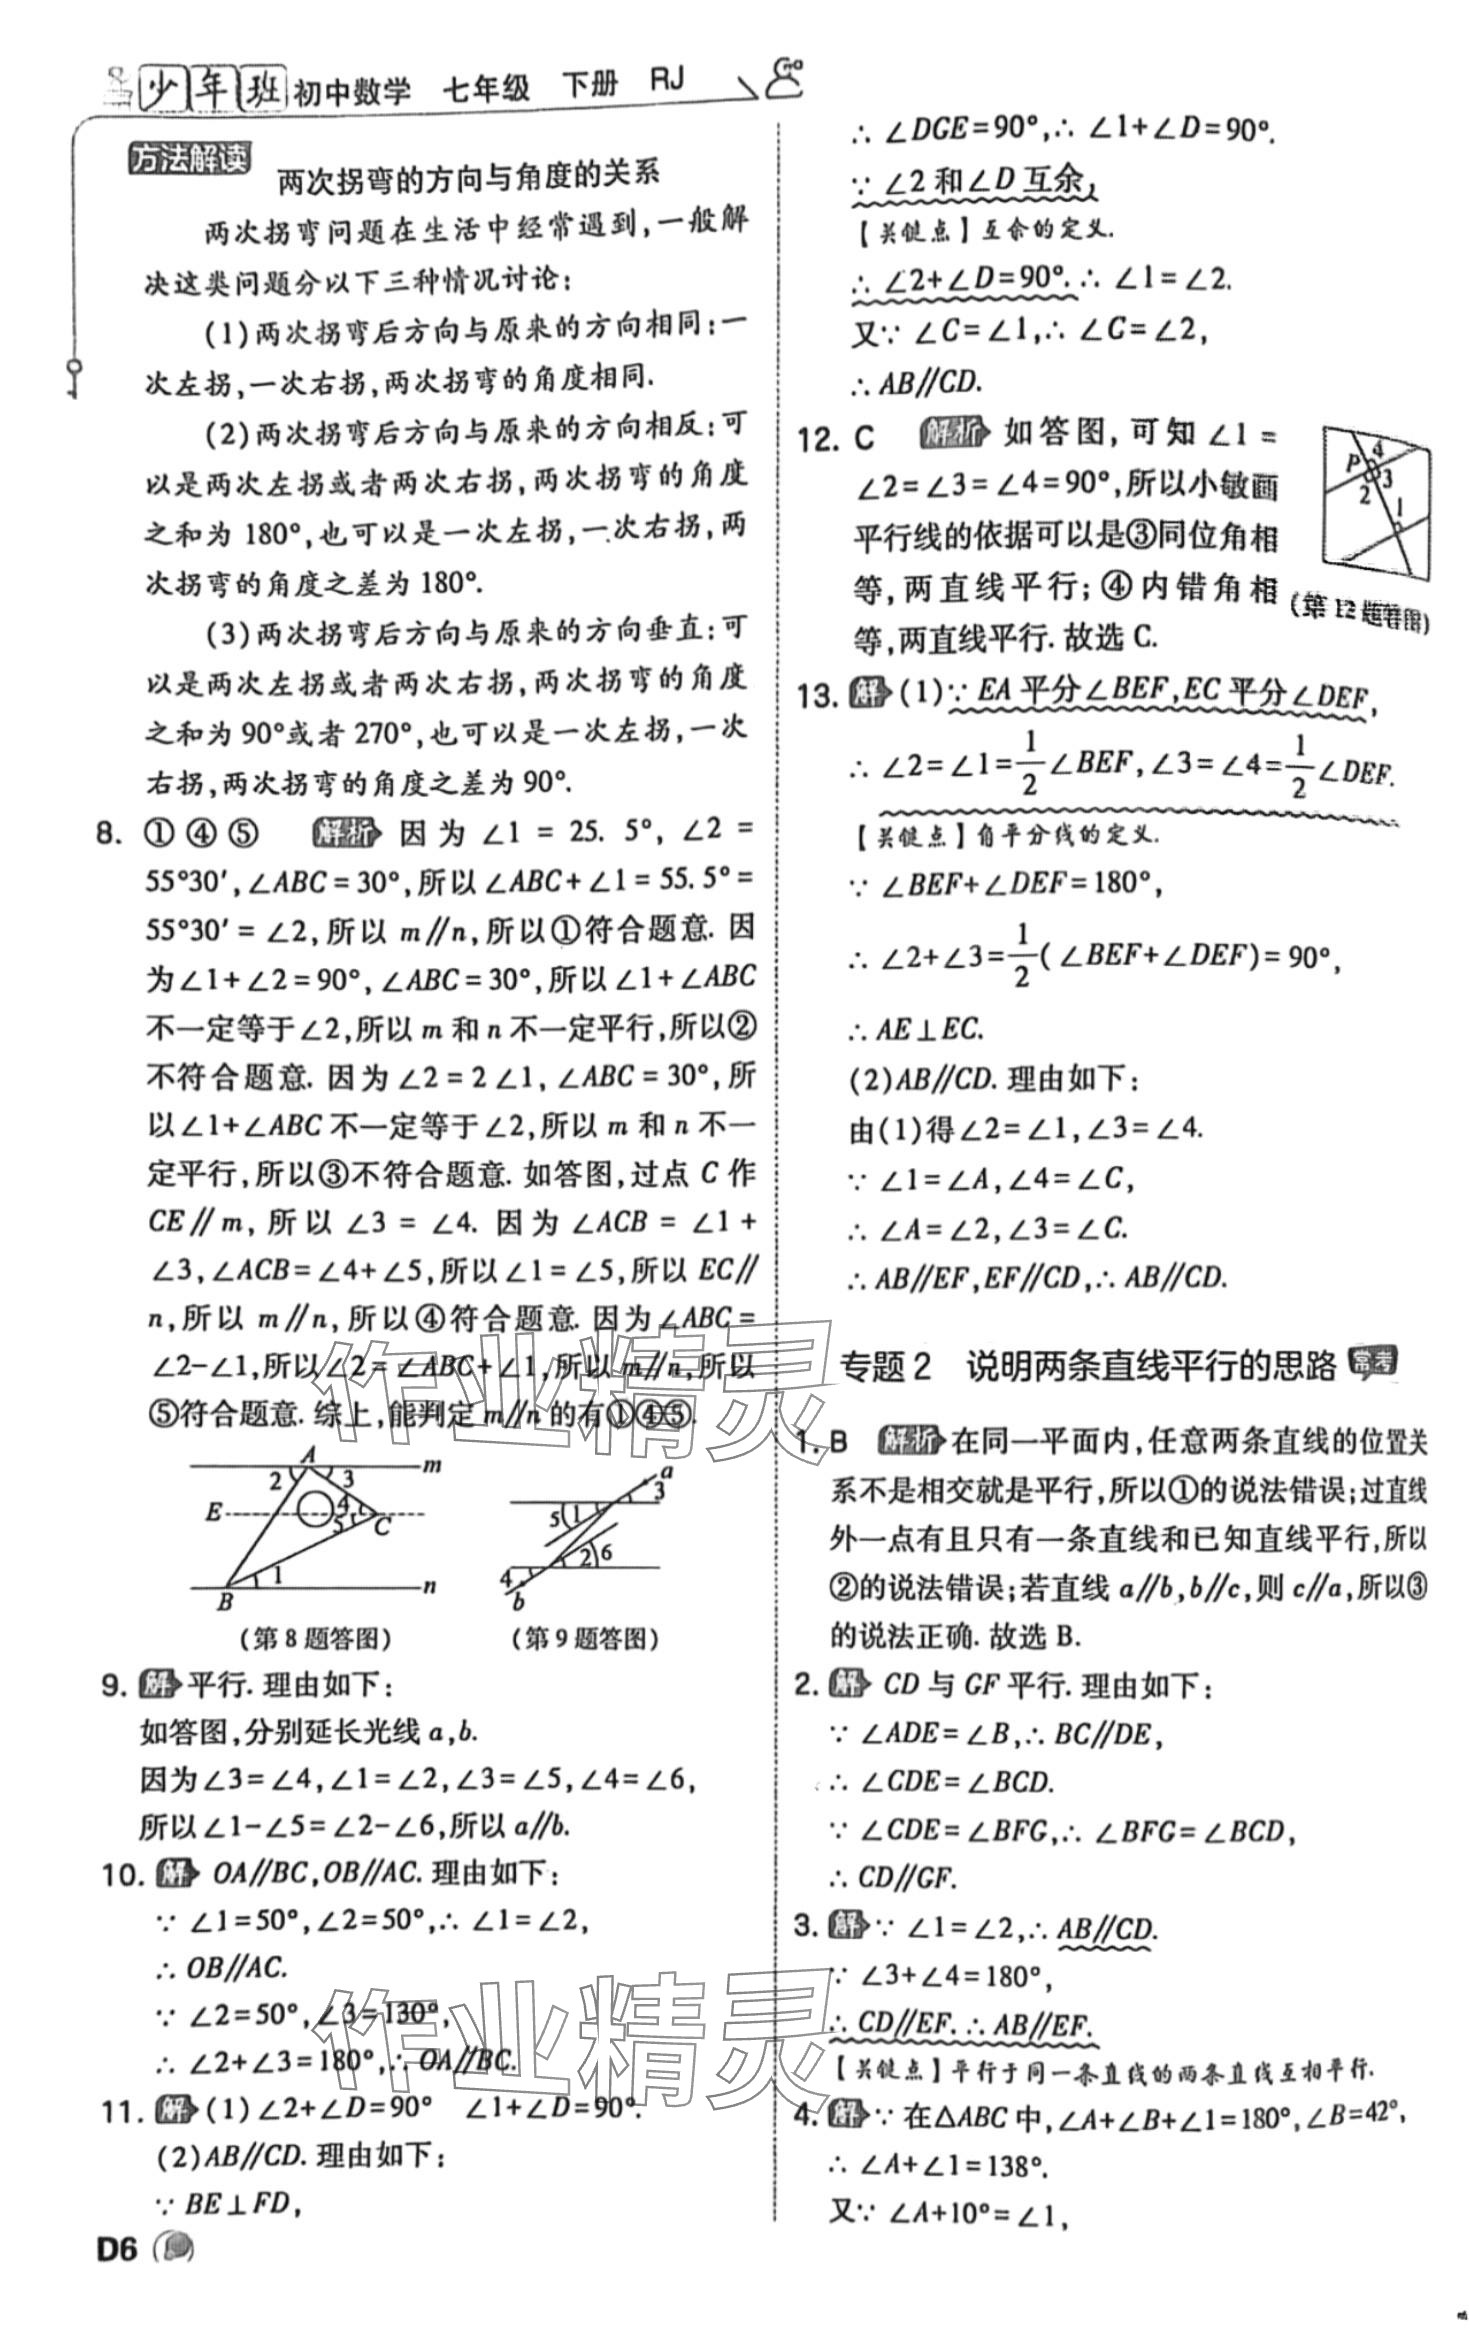 少年班 初中数学 七年级 下册 RJ
方法解读
两次拐弯的方向与角度的关系
两次拐弯问题在生活中经常遇到,一般解
决这类问题分以下三种情况讨论:
(1)两次拐弯后方向与原来的方向相同:一
次左拐,一次右拐,两次拐弯的角度相同.
(2)两次拐弯后方向与原来的方向相反:可
以是两次左拐或者两次右拐,两次拐弯的角度
之和为180°,也可以是一次左拐,一次右拐,两
次拐弯的角度之差为180°.
(3)两次拐弯后方向与原来的方向垂直:可
以是两次左拐或者两次右拐,两次拐弯的角度
之和为90°或者270°,也可以是一次左拐,一次
右拐,两次拐弯的角度之差为90°.
8. ①④⑤ 解析 因为∠1=25.5°,∠2=
55°30′,∠ABC=30°,所以∠ABC+∠1=55.5°=
55°30′=∠2,所以 m∥n,所以①符合题意. 因
为∠1+∠2=90°,∠ABC=30°,所以∠1+∠ABC
不一定等于∠2,所以 m 和 n 不一定平行,所以②
不符合题意. 因为∠2=2∠1,∠ABC=30°,所
以∠1+∠ABC不一定等于∠2,所以 m 和 n 不一
定平行,所以③不符合题意. 如答图,过点 C 作
CE∥m,所以∠3=∠4. 因为∠ACB=∠1+
∠3,∠ACB=∠4+∠5,所以∠1=∠5,所以 EC∥
n,所以 m∥n,所以④符合题意. 因为∠ABC=
∠2-∠1,所以∠2=∠ABC+∠1,所以 m∥n,所以
⑤符合题意. 综上,能判定 m∥n 的有①④⑤.
A m 2 3 E 4 5 C 1 B n
a 3 5 1 2 6 4 b
(第8题答图) (第9题答图)
9. 解 平行. 理由如下:
如答图,分别延长光线 a,b.
因为∠3=∠4,∠1=∠2,∠3=∠5,∠4=∠6,
所以∠1-∠5=∠2-∠6,所以 a∥b.
10. 解 OA∥BC,OB∥AC. 理由如下:
∵ ∠1=50°,∠2=50°,∴ ∠1=∠2,
∴ OB∥AC.
∵ ∠2=50°,∠3=130°,
∴ ∠2+∠3=180°,∴ OA∥BC.
11. 解 (1)∠2+∠D=90° ∠1+∠D=90°.
(2)AB∥CD. 理由如下:
∵ BE⊥FD,
D6
∴ ∠DGE=90°,∴ ∠1+∠D=90°.
∵ ∠2 和∠D 互余,
【关键点】互余的定义.
∴ ∠2+∠D=90°.∴ ∠1=∠2.
又∵ ∠C=∠1,∴ ∠C=∠2,
∴ AB∥CD.
12. C 解析 如答图,可知∠1=
∠2=∠3=∠4=90°,所以小敏画
平行线的依据可以是③同位角相
等,两直线平行;④内错角相
等,两直线平行. 故选 C.
P 4 3 2 1
(第12题答图)
13. 解 (1)∵ EA 平分∠BEF,EC 平分∠DEF,
∴ ∠2=∠1=1/2∠BEF,∠3=∠4=1/2∠DEF.
【关键点】角平分线的定义.
∵ ∠BEF+∠DEF=180°,
∴ ∠2+∠3=1/2(∠BEF+∠DEF)=90°,
∴ AE⊥EC.
(2)AB∥CD. 理由如下:
由(1)得∠2=∠1,∠3=∠4.
∵ ∠1=∠A,∠4=∠C,
∴ ∠A=∠2,∠3=∠C.
∴ AB∥EF,EF∥CD,∴ AB∥CD.
专题2 说明两条直线平行的思路 常考
1. B 解析 在同一平面内,任意两条直线的位置关
系不是相交就是平行,所以①的说法错误;过直线
外一点有且只有一条直线和已知直线平行,所以
②的说法错误;若直线 a∥b,b∥c,则 c∥a,所以③
的说法正确. 故选 B.
2. 解 CD 与 GF 平行. 理由如下:
∵ ∠ADE=∠B,∴ BC∥DE,
∴ ∠CDE=∠BCD.
∵ ∠CDE=∠BFG,∴ ∠BFG=∠BCD,
∴ CD∥GF.
3. 解 ∵ ∠1=∠2,∴ AB∥CD.
∵ ∠3+∠4=180°,
∴ CD∥EF.∴ AB∥EF.
【关键点】平行于同一条直线的两条直线互相平行.
4. 解 ∵ 在△ABC 中,∠A+∠B+∠1=180°,∠B=42°,
∴ ∠A+∠1=138°.
又∵ ∠A+10°=∠1,
作业精灵
作业精灵